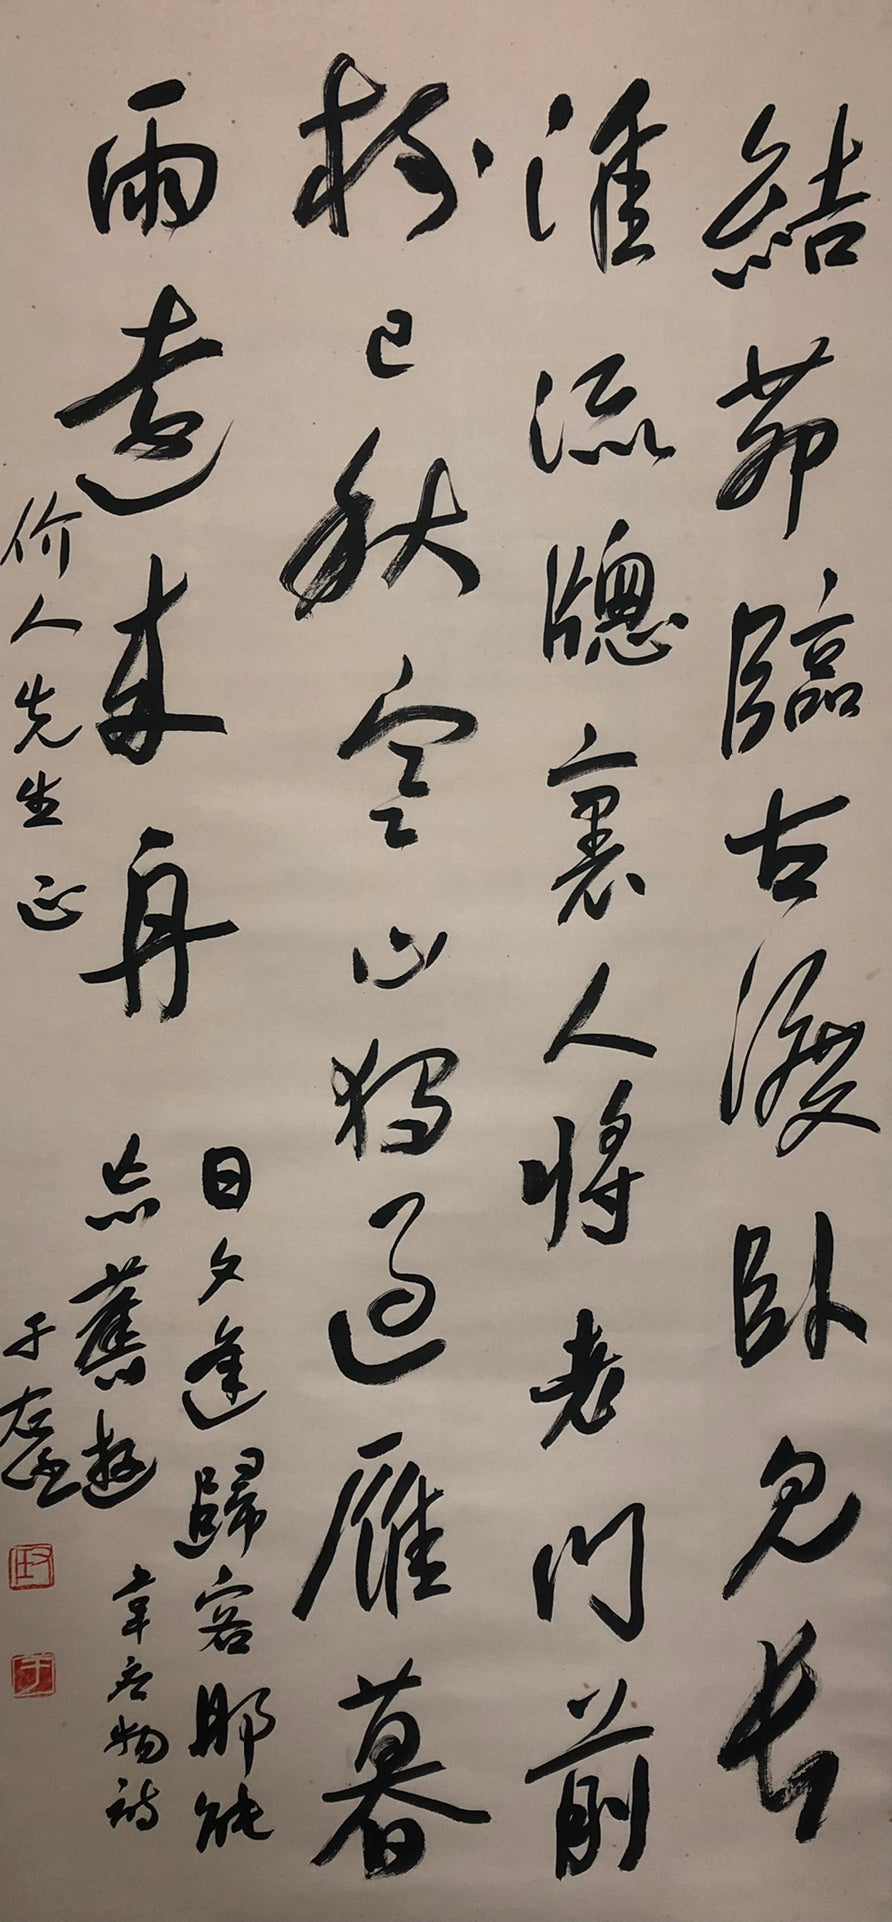 結茆臨古渡臥見長
淮流牕裏人將老門前
樹已秋寒山獨過雁暮
雨遠來舟
日夕逢歸客那能
忘舊遊 韋應物詩
价人先生正
于右任